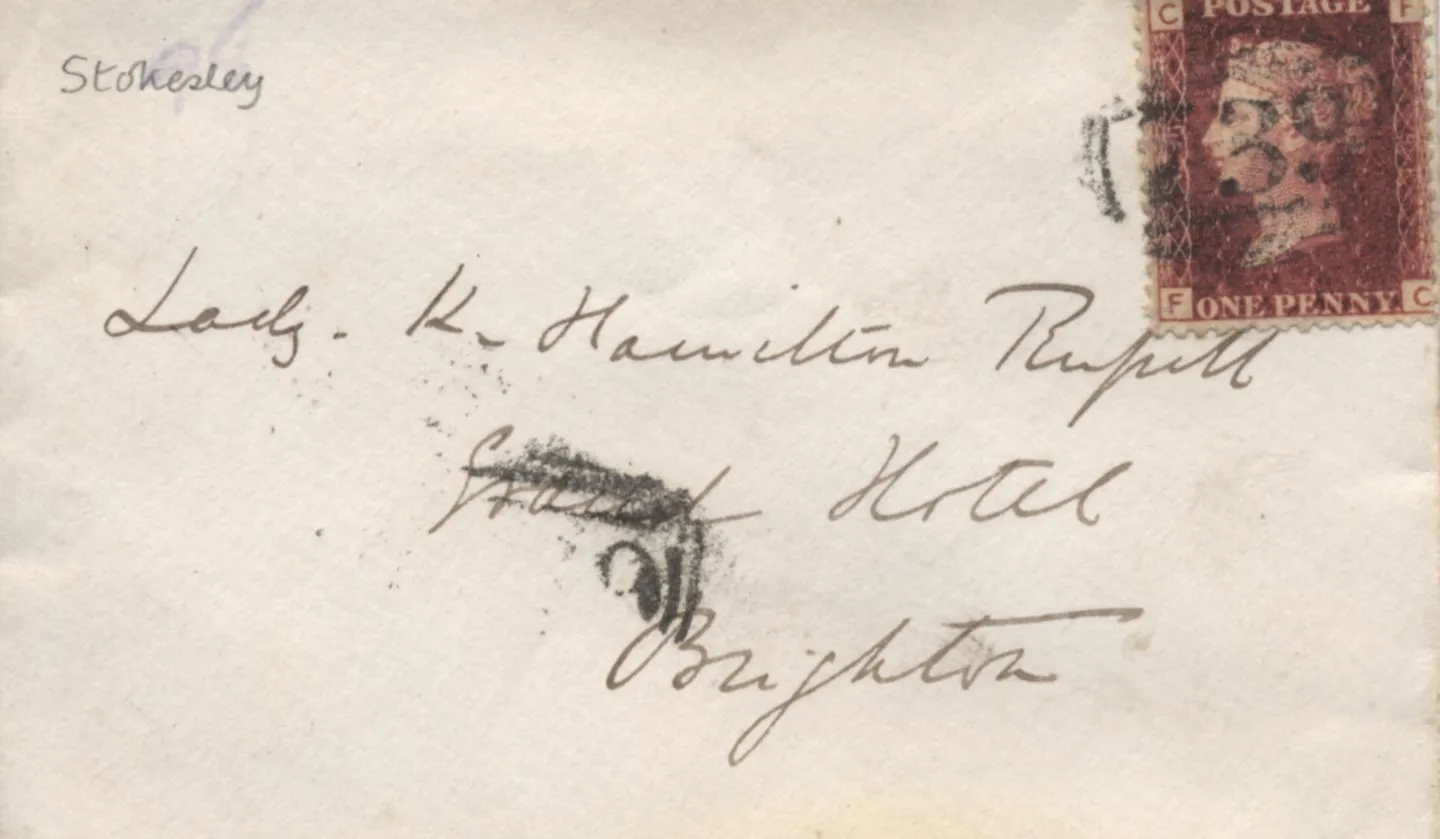 Stokesley
C POSTAGE F
Lady. K. Hamilton Russell
Grand Hotel
Brighton
F ONE PENNY. C